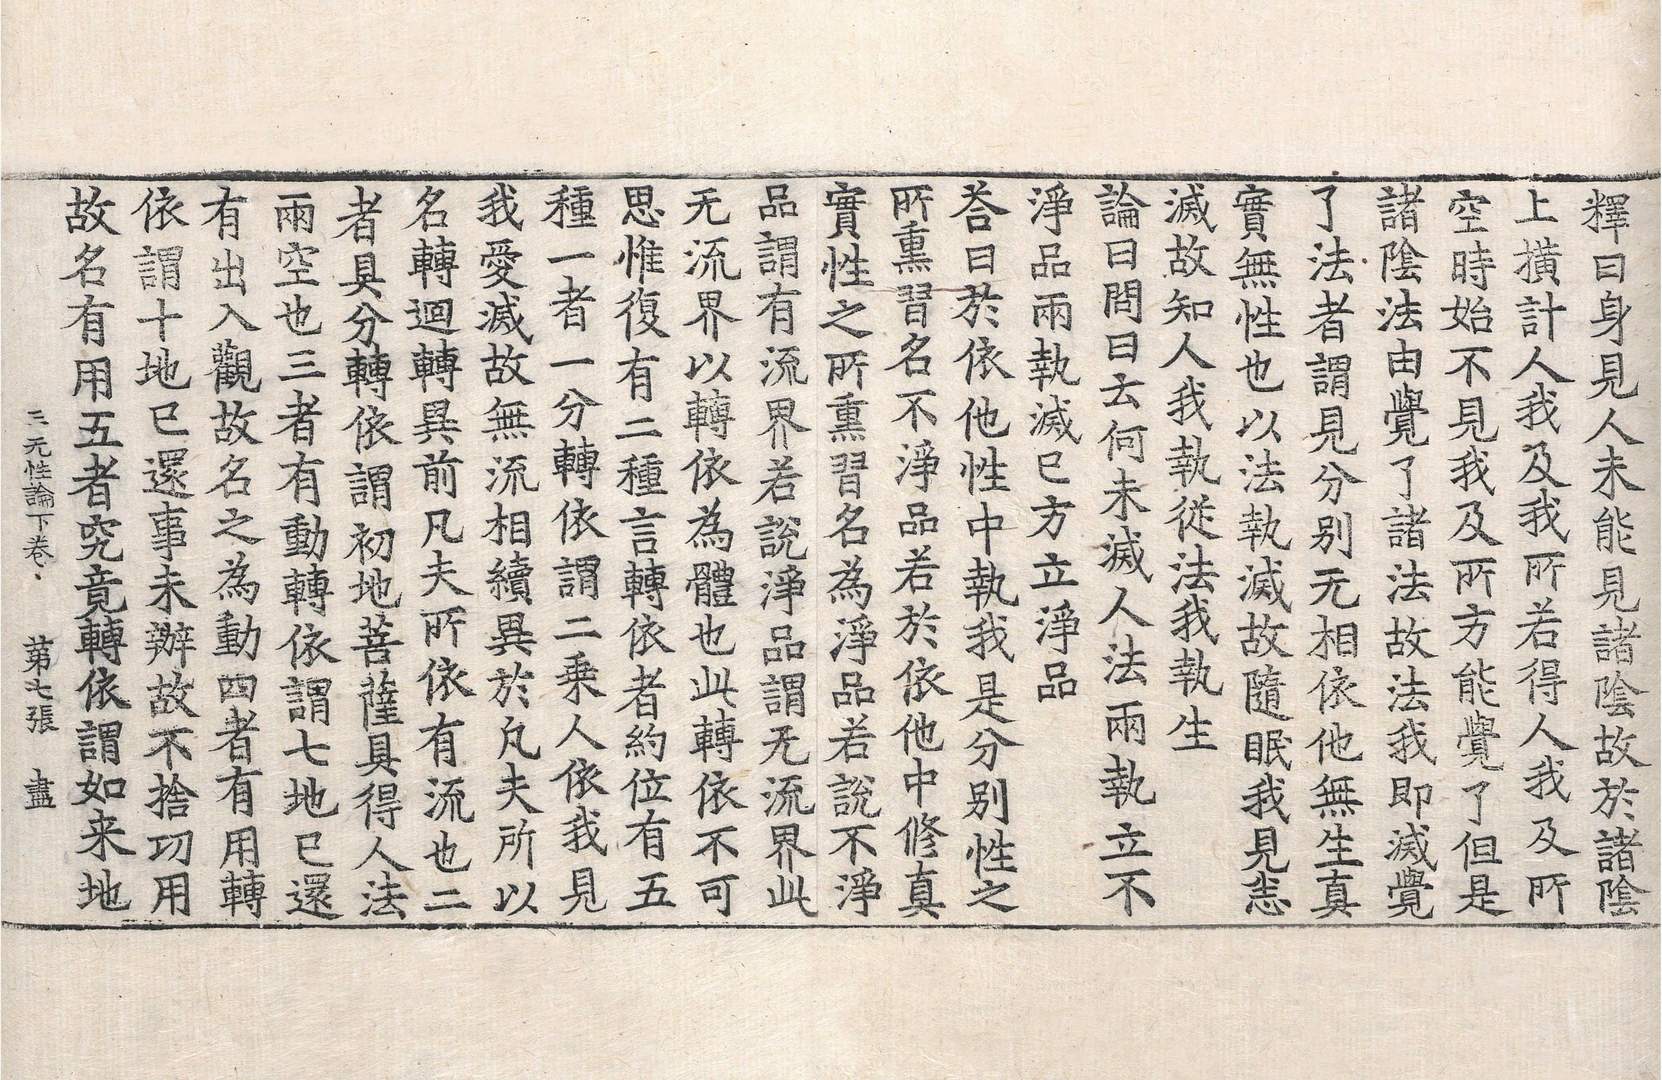 釋曰身見人未能見諸陰故於諸陰
上撗計人我及我所若得人我及所
空時始不見我及所方能覺了但是
諸陰法由覺了諸法故法我即滅覺
了法者謂見分别无相依他無生真
實無性也以法執滅故隨眠我見恚
滅故知人我執從法我執生
論曰問曰云何未滅人法兩執立不
淨品兩執滅已方立淨品
荅曰於依他性中執我是分别性之
所熏習名不淨品若於依他中修真
實性之所熏習名為淨品若說不淨
品謂有流界若說淨品謂无流界此
无流界以轉依為體也此轉依不可
思惟復有二種言轉依者約位有五
種一者一分轉依謂二乗人依我見
我愛滅故無流相續異於凡夫所以
名轉迴轉異前凡夫所依有流也二
者具分轉依謂初地菩薩具得人法
兩空也三者有動轉依謂七地已還
有出入觀故名之為動四者有用轉
依謂十地已還事未辦故不捨功用
故名有用五者究竟轉依謂如来地
三无性論下卷 第七張 盡